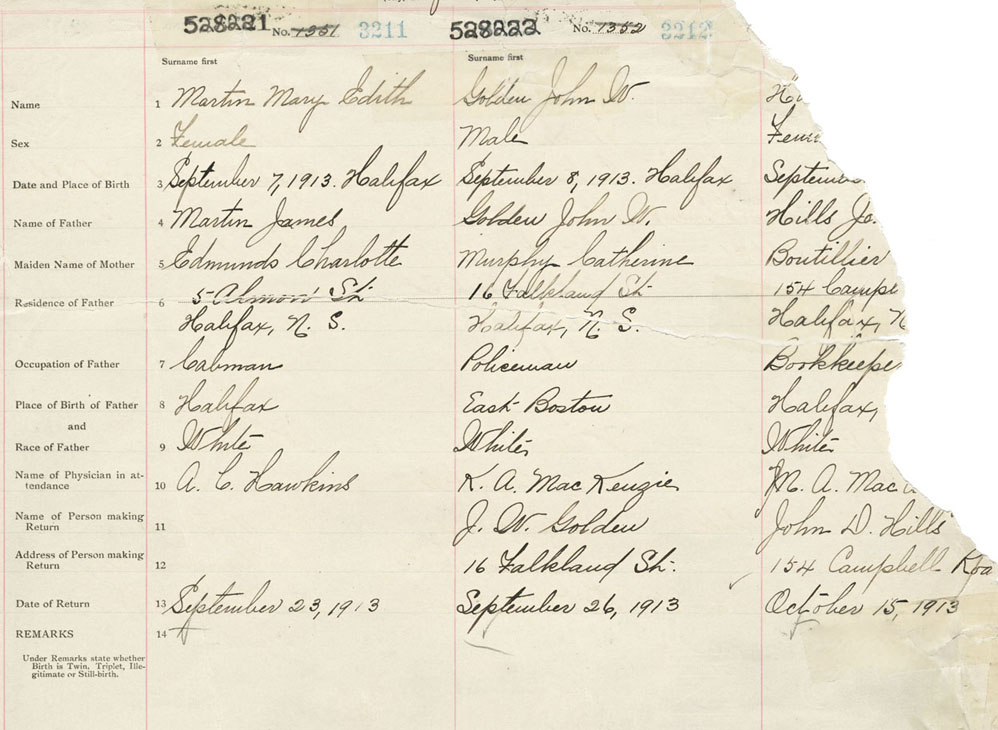 528221 No. 1351 3211 528222 No. 1352 3212
Surname first Surname first
Name 1 Martin Mary Edith Golden John W.
Sex 2 Female Male Fem
Date and Place of Birth 3 September 7, 1913. Halifax September 8, 1913. Halifax Septemb
Name of Father 4 Martin James Golden John W. Hills
Maiden Name of Mother 5 Edmunds Charlotte Murphy Catherine Boutillier
Residence of Father 6 5 Almon St. 16 Falkland St. 154 Campb
Halifax, N. S. Halifax, N. S. Halifax, N
Occupation of Father 7 Cabman Policeman Bookkeepe
Place of Birth of Father 8 Halifax East Boston Halifax,
and
Race of Father 9 White White White
Name of Physician in at-
tendance 10 A. C. Hawkins K. A. MacKenzie M. A. Mac
Name of Person making
Return 11 J. W. Golden John D. Hills
Address of Person making
Return 12 16 Falkland St. 154 Campbell Roa
Date of Return 13 September 23, 1913 September 26, 1913 October 15, 1913
REMARKS 14
Under Remarks state whether
Birth is Twin, Triplet, Ille-
gitimate or Still-birth.